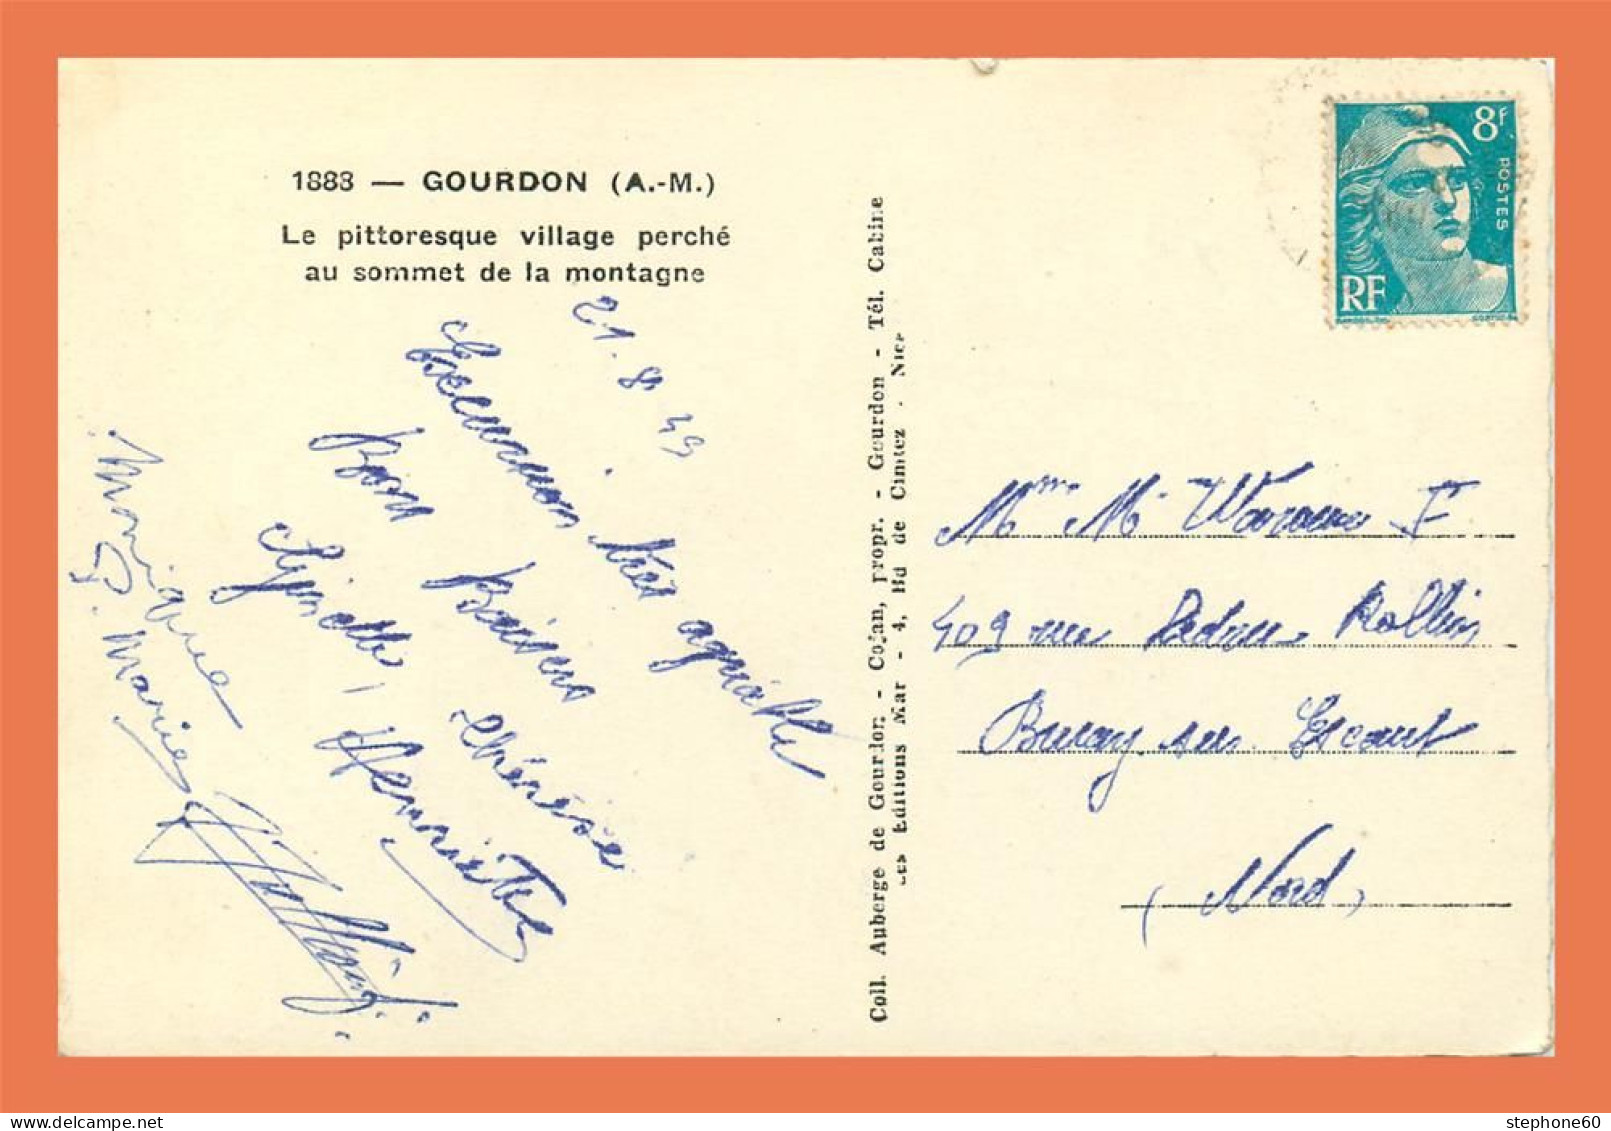 1883 — GOURDON (A.-M.)
Le pittoresque village perché
au sommet de la montagne
21.8.49
Excursion très agréable
Bons Baisers
Gynette, Thérèse
Henriette
Monique
P. Marie
Coll. Auberge de Gourdon - Cojan, propr. - Gourdon - Tél. Cabine
Les Editions Mar - 4, Bd de Cimiez - Nice
8f
POSTES
RF
Mme M
409 rue Ledru Rollin
Bruay sur Escaut
(Nord)
stephone60